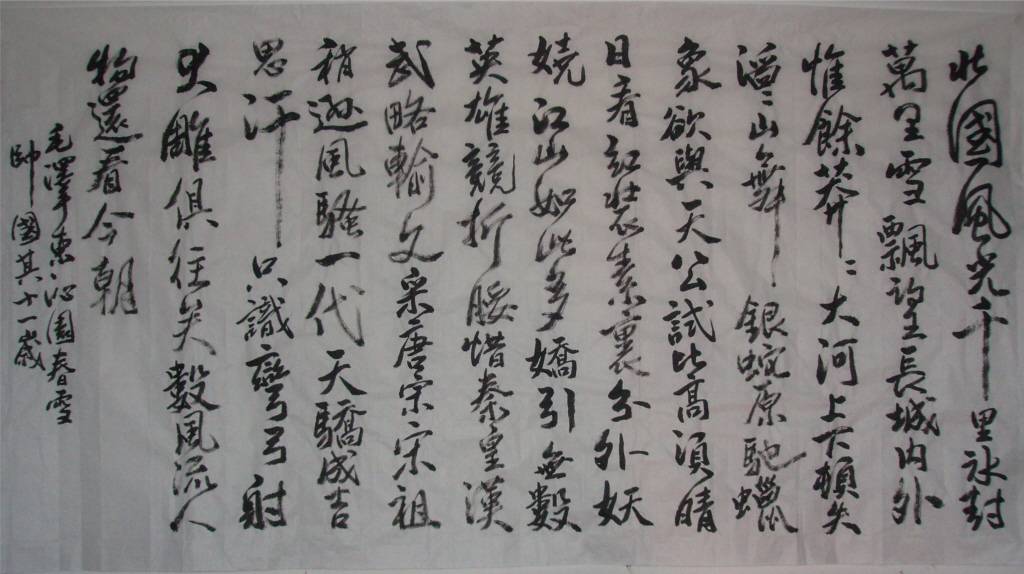 北國風光千里冰封
萬里雪飄望長城内外
惟餘莽〻大河上下頓失
滔〻山舞銀蛇原馳蠟
象欲與天公試比高須晴
日看紅裝素裹分外妖
嬈江山如此多嬌引無數
英雄競折腰惜秦皇漢
武略輸文采唐宗宋祖
稍遜風騷一代天驕成吉
思汗只識彎弓射
大雕俱往矣數風流人
物還看今朝
毛澤東沁園春雪
帥國其十一歲